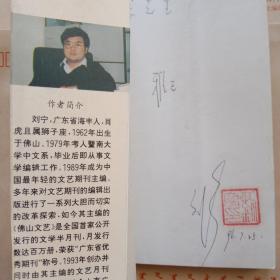 作者简介
刘宁,广东省海丰人,肖
虎且属狮子座,1962年出生
于佛山。1979年考入暨南大
学中文系,毕业后即从事文
学编辑工作。1989年成为中
国最年轻的文艺期刊主编。
多年来对文艺期刊的编辑出
版进行了一系列大胆而切实
的改革探索,如今其主编的
《佛山文艺》是全国首家公开
发行的文学半月刊,月发行
数达百万册,荣获“广东省优
秀期刊”称号。1993年创办并
同时由其主编的文艺月刊
雅正